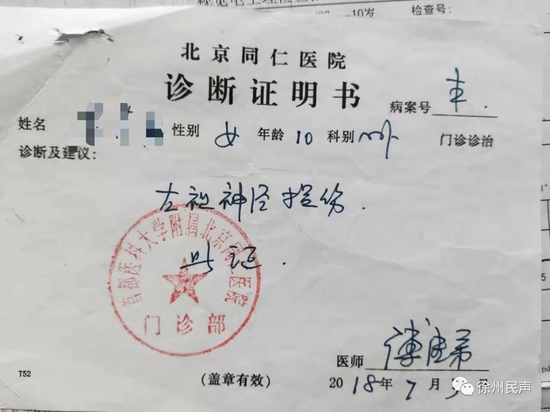 10岁
检查号:
北京同仁医院
诊断证明书
病案号
姓名 性别 女 年龄 10 科别 门诊诊治
诊断及建议:
左视神经挫伤.
此证.
首都医科大学附属北京同仁医院
门诊部
医师
(盖章有效)
2018年7月 日
T52
徐州民声